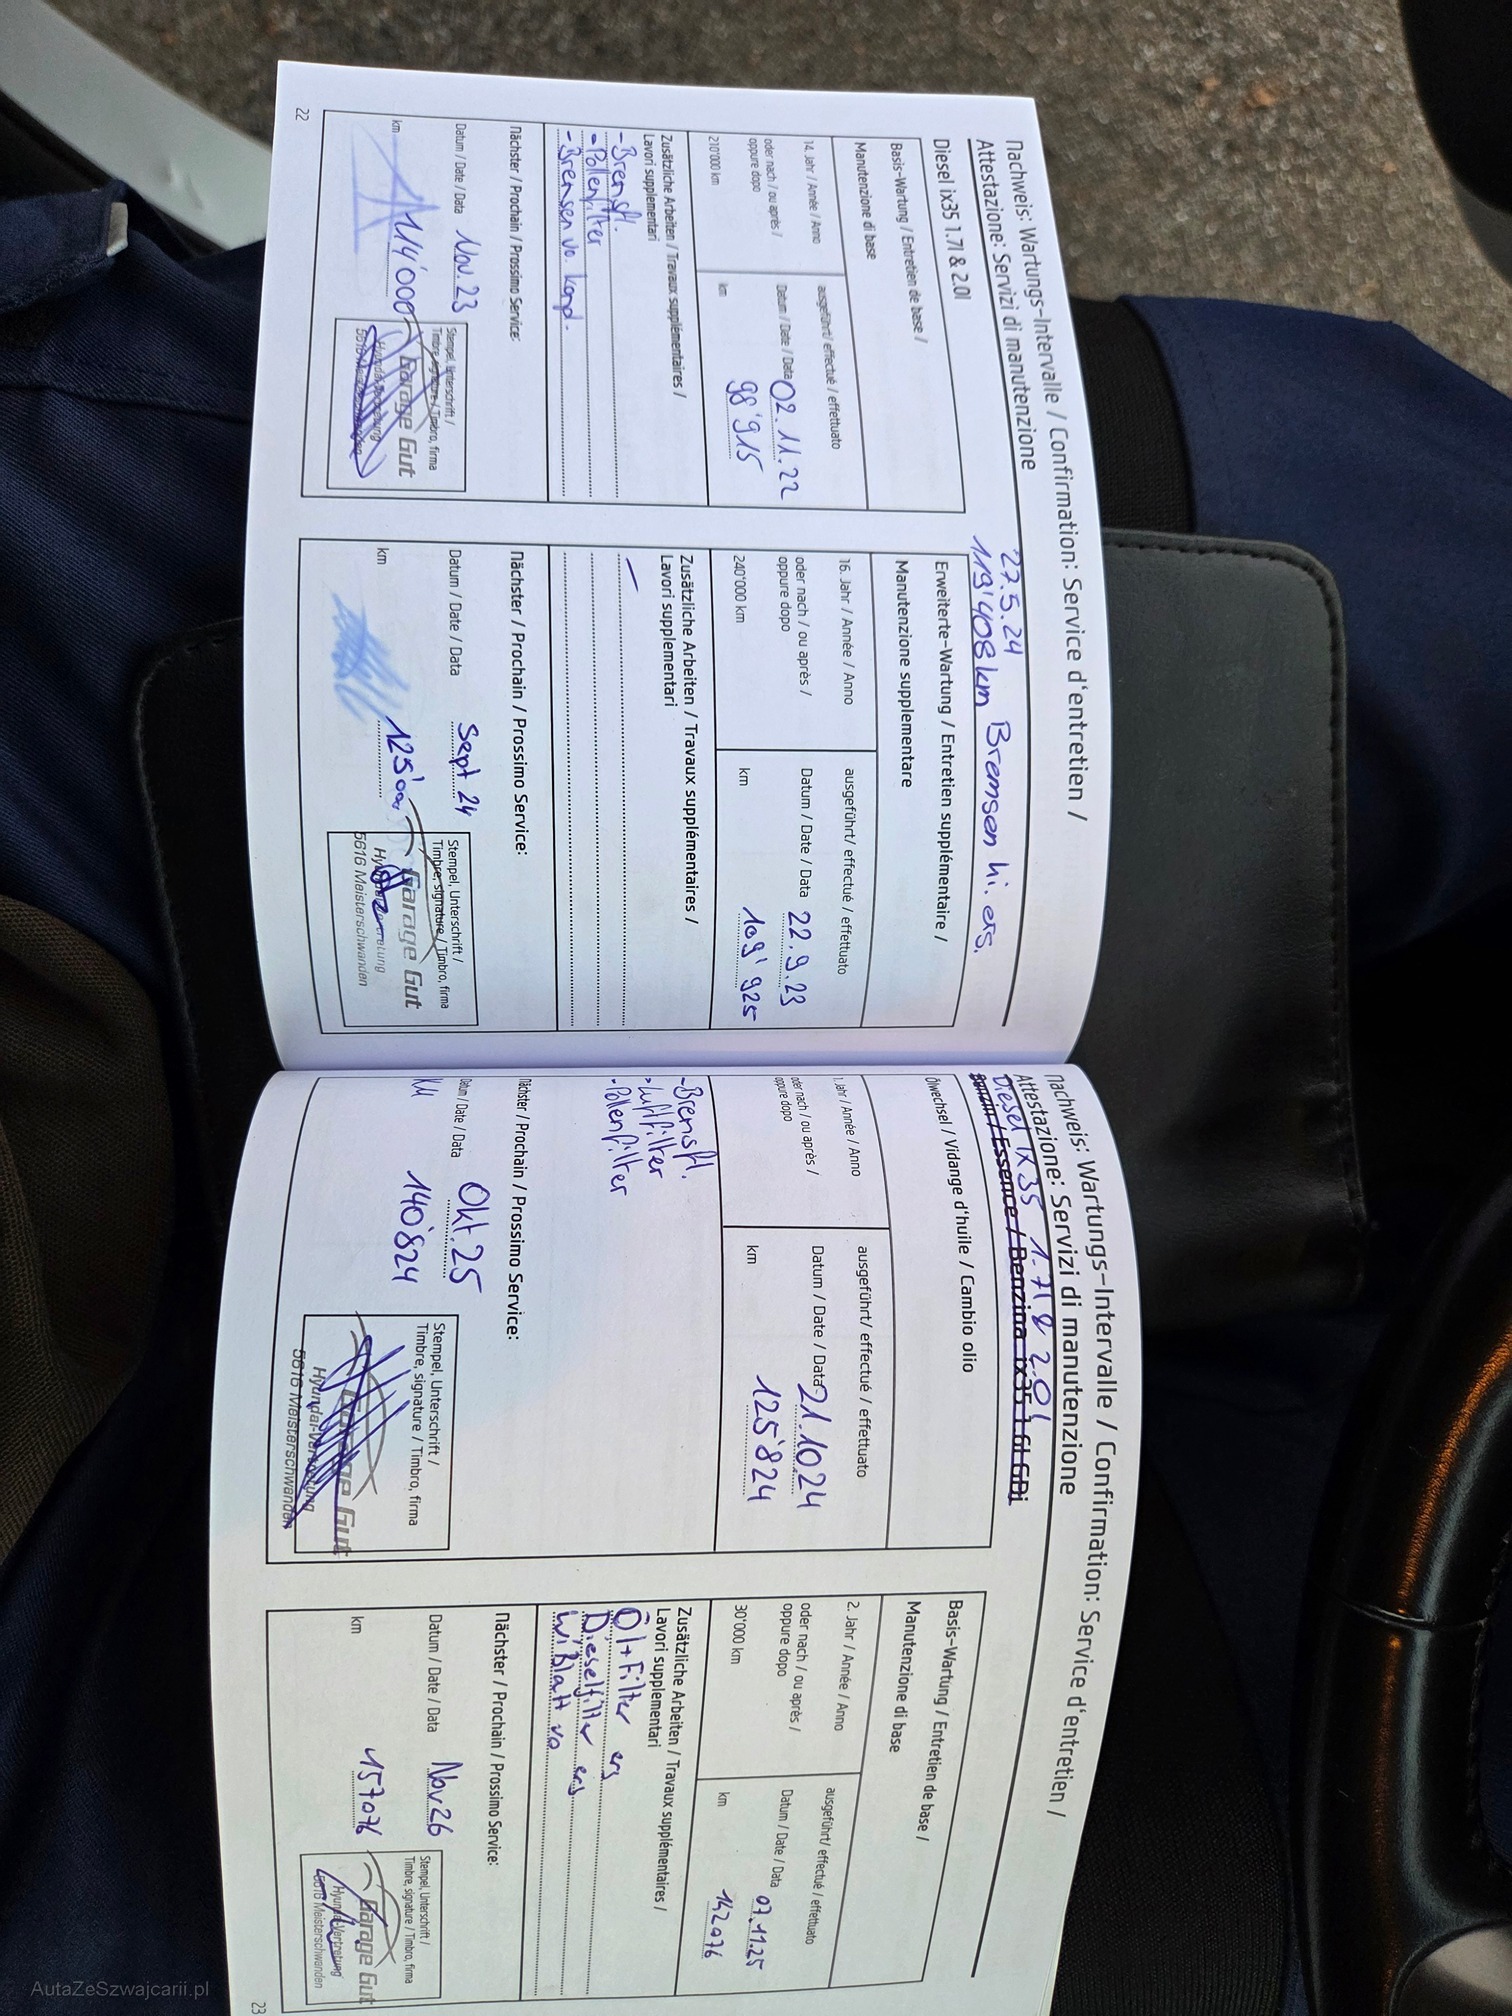 Nachweis: Wartungs-Intervalle / Confirmation: Service d'entretien /
Attestazione: Servizi di manutenzione
27.5.24
119'408km Bremsen hi. ers.
Diesel ix35 1.7l & 2.0l
Basis-Wartung / Entretien de base /
Manutenzione di base
14. Jahr / Année / Anno
oder nach / ou après /
oppure dopo
210'000 km
ausgeführt/ effectué / effettuato
Datum / Date / Data 02.11.22
km 98'915
Zusätzliche Arbeiten / Travaux supplémentaires /
Lavori supplementari
- Bremsfl.
- Pollenfilter
- Bremsen vo. kompl.
Nächster / Prochain / Prossimo Service:
Datum / Date / Data Nov. 23
km 114'000
Stempel, Unterschrift /
Timbre, signature / Timbro, firma
Garage Gut
Hyundai-Vertretung
5616 Meisterschwanden
22
Erweiterte-Wartung / Entretien supplémentaire /
Manutenzione supplementare
16. Jahr / Année / Anno
oder nach / ou après /
oppure dopo
240'000 km
ausgeführt/ effectué / effettuato
Datum / Date / Data 22.9.23
km 109'925
Zusätzliche Arbeiten / Travaux supplémentaires /
Lavori supplementari
Nächster / Prochain / Prossimo Service:
Datum / Date / Data Sept 24
km 125'000
Stempel, Unterschrift /
Timbre, signature / Timbro, firma
Garage Gut
Hyundai-Vertretung
5616 Meisterschwanden
Nachweis: Wartungs-Intervalle / Confirmation: Service d'entretien /
Attestazione: Servizi di manutenzione
Diesel IX35 1.7l & 2.0l
Benzin / Essence / Benzina ix35 1.6l GDi
Ölwechsel / Vidange d'huile / Cambio olio
1. Jahr / Année / Anno
oder nach / ou après /
oppure dopo
ausgeführt/ effectué / effettuato
Datum / Date / Data 21.10.24
km 125'824
- Bremsfl.
- Luftfilter
- Pollenfilter
Nächster / Prochain / Prossimo Service:
Datum / Date / Data Okt. 25
KM 140'824
Stempel, Unterschrift /
Timbre, signature / Timbro, firma
Garage Gut
Hyundai-Vertretung
5616 Meisterschwanden
Basis-Wartung / Entretien de base /
Manutenzione di base
2. Jahr / Année / Anno
oder nach / ou après /
oppure dopo
30'000 km
ausgeführt/ effectué / effettuato
Datum / Date / Data 07.11.25
km 142076
Zusätzliche Arbeiten / Travaux supplémentaires /
Lavori supplementari
Öl+Filter ers
Dieselfilter ers
Wi Blatt vo
Nächster / Prochain / Prossimo Service:
Datum / Date / Data Nov 26
km 157076
Stempel, Unterschrift /
Timbre, signature / Timbro, firma
Garage Gut
Hyundai-Vertretung
5616 Meisterschwanden
23
AutaZeSzwajcarii.pl